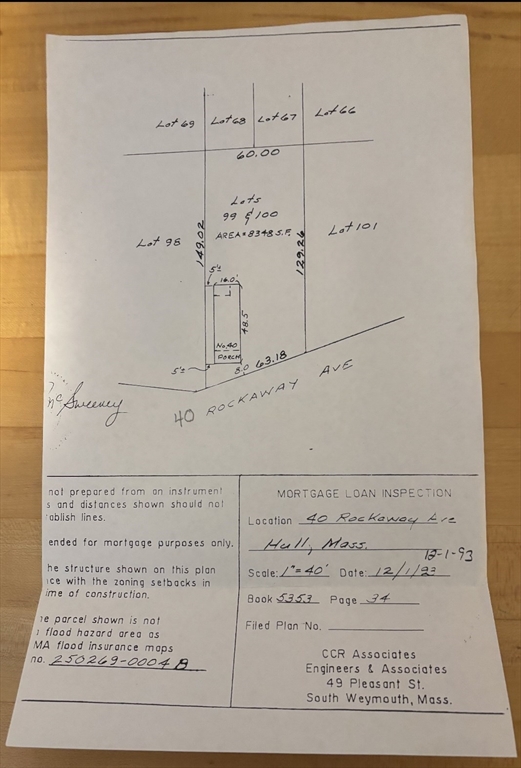 Lot 69 Lot 68 Lot 67 Lot 66
60.00
Lots
99 & 100
AREA=8348 S.F.
Lot 98
Lot 101
149.02
129.26
5'±
16.0'
48.5
No. 40
PORCH
5'±
8.0
63.18
40 ROCKAWAY AVE
McSweeney
not prepared from an instrument
s and distances shown should not
ablish lines.
ended for mortgage purposes only.
he structure shown on this plan
ce with the zoning setbacks in
ime of construction.
e parcel shown is not
flood hazard area as
MA flood insurance maps
no. 250269-0004 B
MORTGAGE LOAN INSPECTION
Location 40 Rockaway Ave
Hull, Mass.
12-1-93
Scale: 1"=40' Date: 12/1/93
Book 5353 Page 34
Filed Plan No.
CCR Associates
Engineers & Associates
49 Pleasant St.
South Weymouth, Mass.